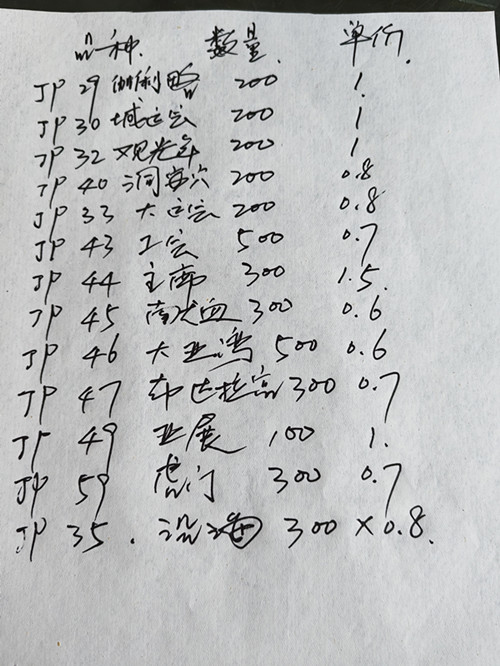 品种. 数量. 单价.
JP 29 伽利略 200 1.
JP 30 城运会 200 1
JP 32 观光年 200 1
JP 40 洞窟穴 200 0.8
JP 33 大运会 200 0.8
JP 43 工会 500 0.7
JP 44 主席 300 1.5.
JP 45 南 血 300 0.6
JP 46 大亚湾 500 0.6
JP 47 布达拉宫 300 0.7
JP 49 亚展 100 1.
JP 59 虎门 300 0.7
JP 35. 沿海 300 × 0.8.